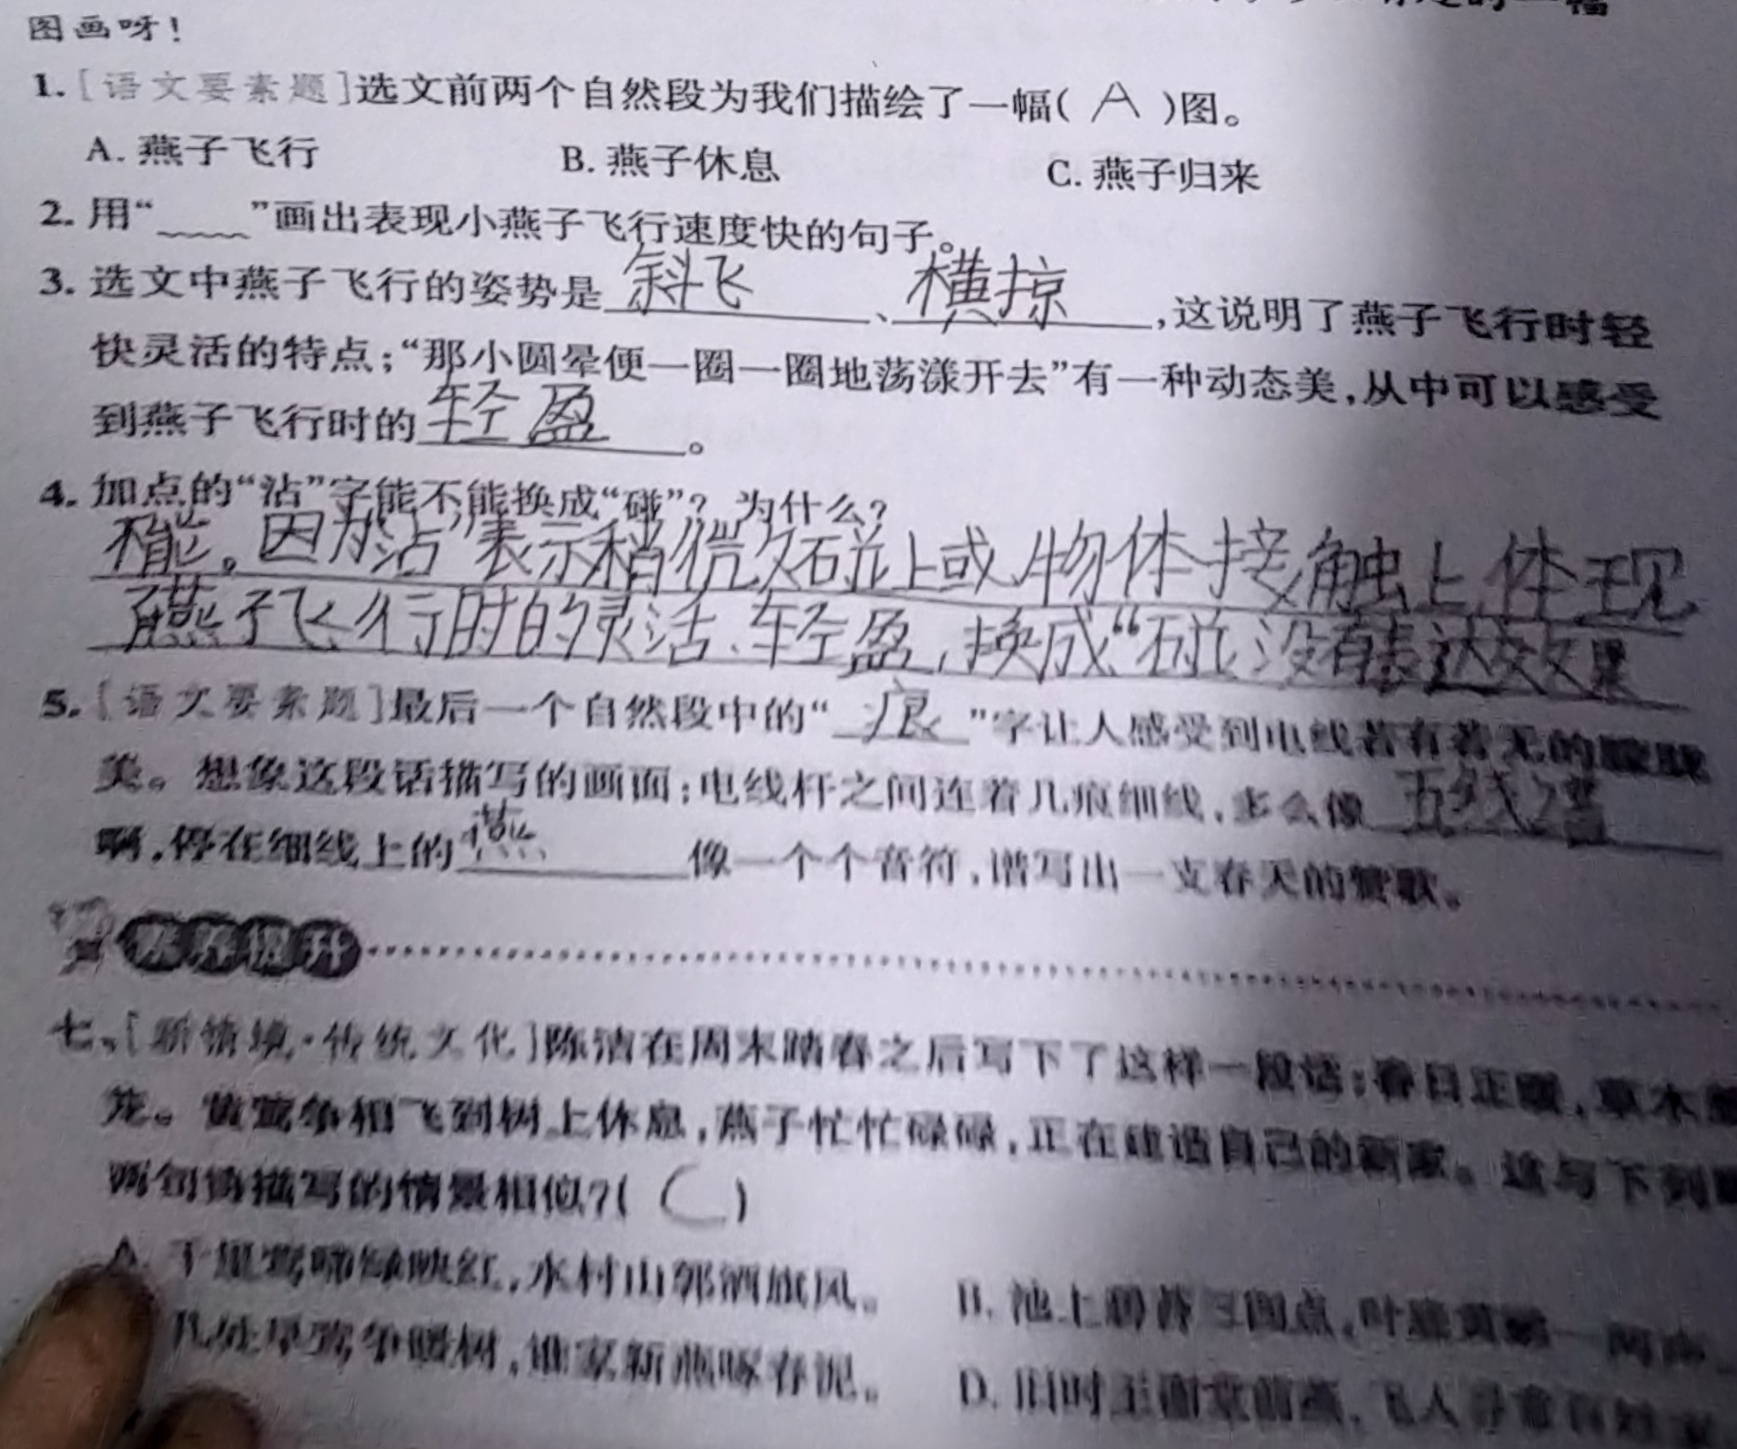 图画呀!
1.[语文要素题]选文前两个自然段为我们描绘了一幅( A )图。
A. 燕子飞行 B. 燕子休息 C. 燕子归来
2. 用“﹏﹏”画出表现小燕子飞行速度快的句子。
3. 选文中燕子飞行的姿势是斜飞、横掠,这说明了燕子飞行时轻
快灵活的特点;“那小圆晕便一圈一圈地荡漾开去”有一种动态美,从中可以感受
到燕子飞行时的轻盈。
4. 加点的“沾”字能不能换成“碰”?为什么?
不能。因为“沾”表示稍微碰上或物体接触上,体现
燕子飞行时的灵活、轻盈,换成“碰”没有表达效果
5.[语文要素题]最后一个自然段中的“痕”字让人感受到电线若有若无的朦胧
美。想象这段话描写的画面:电线杆之间连着几痕细线,多么像五线谱
啊,停在细线上的燕像一个个音符,谱写出一支春天的赞歌。
素养提升
七、[新情境·传统文化]陈洁在周末踏春之后写下了这样一段话:春日正暖,草木
笼。黄莺争相飞到树上休息,燕子忙忙碌碌,正在建造自己的新家。这与下列
两句诗描写的情景相似?( C )
A. 千里莺啼绿映红,水村山郭酒旗风。 B. 池上碧苔三四点,叶底黄鹂一两声。
几处早莺争暖树,谁家新燕啄春泥。 D. 旧时王谢堂前燕,飞入寻常百姓家